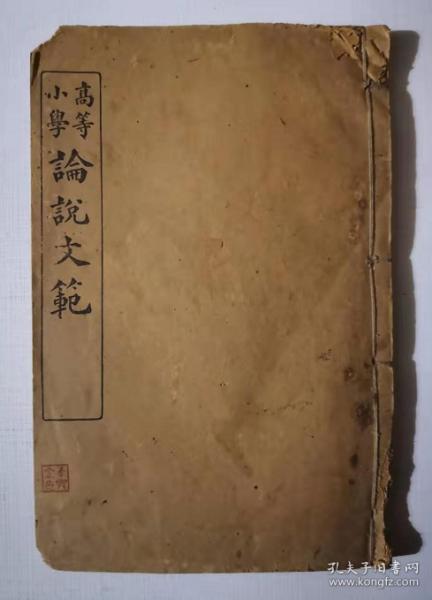 高等
小學
論說文範
孔夫子旧书网
www.kongfz.com